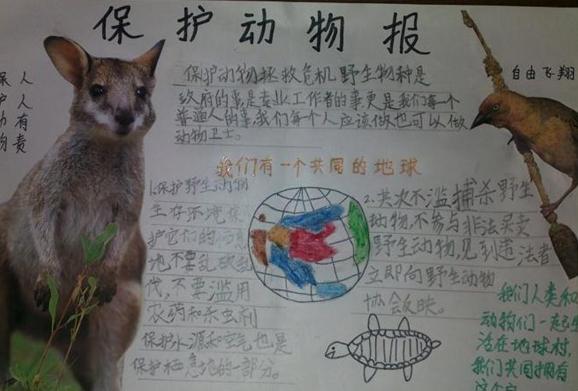 保护动物报
保护动物
人人有责
自由飞翔
保护动物拯救危机野生物种是
政府的事是专业工作者的事更是我们每一个
普通人的事,我们每个人应该做也可以做
动物卫士。
我们有一个共同的地球
1.保护野生动物
生存环境保
护它们的
地不要乱砍乱
伐,不要滥用
农药和杀虫剂
保护水源和空气也是
保护栖息地的一部分。
2.其次不滥捕杀野生
动物,不参与非法买卖
野生动物,见到违法者
立即向野生动物
协会反映。
我们人类和
动物们一起生
活在地球村,
我们共同拥有
这个